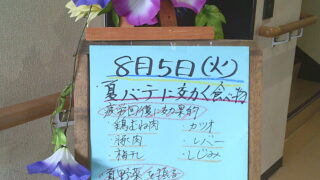 8月5日(火)
夏バテに効く食べ物
疲労回復に効果的
・鶏むね肉 ・カツオ
・豚肉 ・レバー
・梅干し ・しじみ
夏野菜を摂る